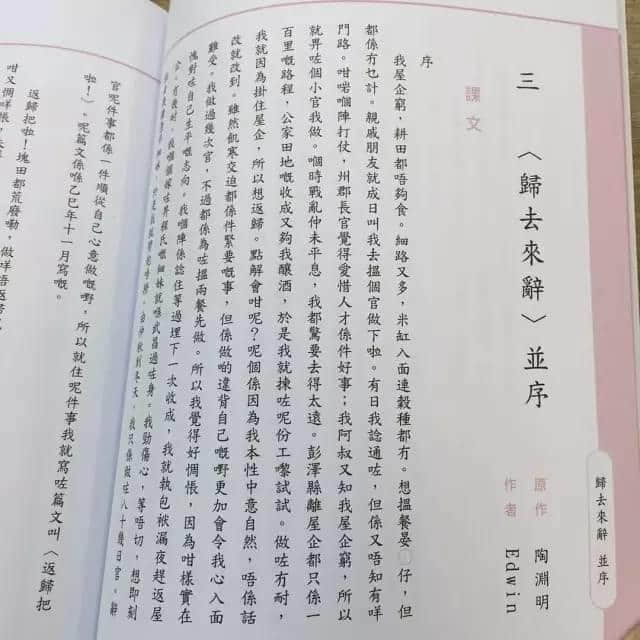 歸去來辭 並序
三 〈歸去來辭〉並序
原作 陶淵明
作者 Edwin
課文
序
我屋企窮，耕田都唔夠食。細路又多，米缸入面連穀種都冇。想搵餐晏仔，但
都係冇乜計。親戚朋友就成日叫我去搵個官做下啦。有日我諗通咗，但係又唔知有咩
門路。咁啱嗰陣打仗，州郡長官覺得愛惜人才係件好事；我阿叔又知我屋企窮，所以
就畀咗個小官我做。嗰時戰亂仲未平息，我都驚要去得太遠。彭澤縣離屋企都只係一
百里嘅路程，公家田地嘅收成又夠我釀酒，於是我就揀咗呢份工嚟試試。做咗冇耐，
我就因為掛住屋企，所以想返歸。點解會咁呢？呢個係因為我本性中意自然，唔係話
改就改到。雖然飢寒交迫都係件緊要嘅事，但係做啲違背自己嘅嘢更加會令我心入面
難受。我做過幾次官，不過都係為咗搵兩餐先做。所以我覺得好惆悵，因為咁樣實在
愧對咗自己生平嘅志向。我嗰陣係諗住等過埋下一次收成，我就執包袱漏夜趕返屋
企。冇幾時，我嗰個嫁咗畀程氏嘅細妹就喺武昌過咗身。我勁傷心，等唔切，想即刻
由仲秋到冬天，我只係做咗八十幾日官。辭
官呢件事都係一件順從自己心意做嘅嘢，所以就住呢件事我就寫咗篇文叫〈返歸把
啦！〉。呢篇文係喺乙巳年十一月寫嘅。
返歸把啦！塊田都荒廢嘞，做咩唔返歸
咁又惆悵，